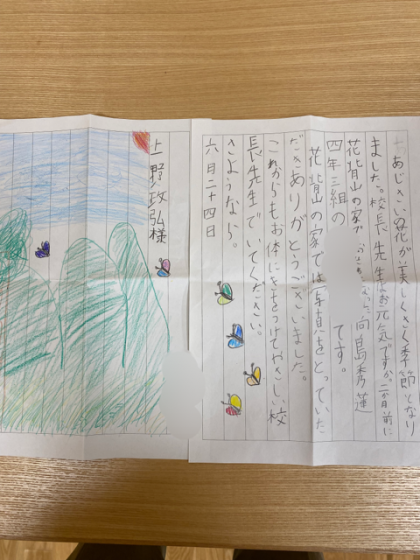 あじさいの花が美しくさく季節となり
ました。校長先生はお元気ですか。二か月前に
花背山の家で
向島秀蓮
四年三組の
です。
花背山の家では写真をとっていた
だきありがとうございました。
これからもお体に気をつけてやさしい校
長先生でいてください。
さようなら。
六月二十四日
上野政弘様